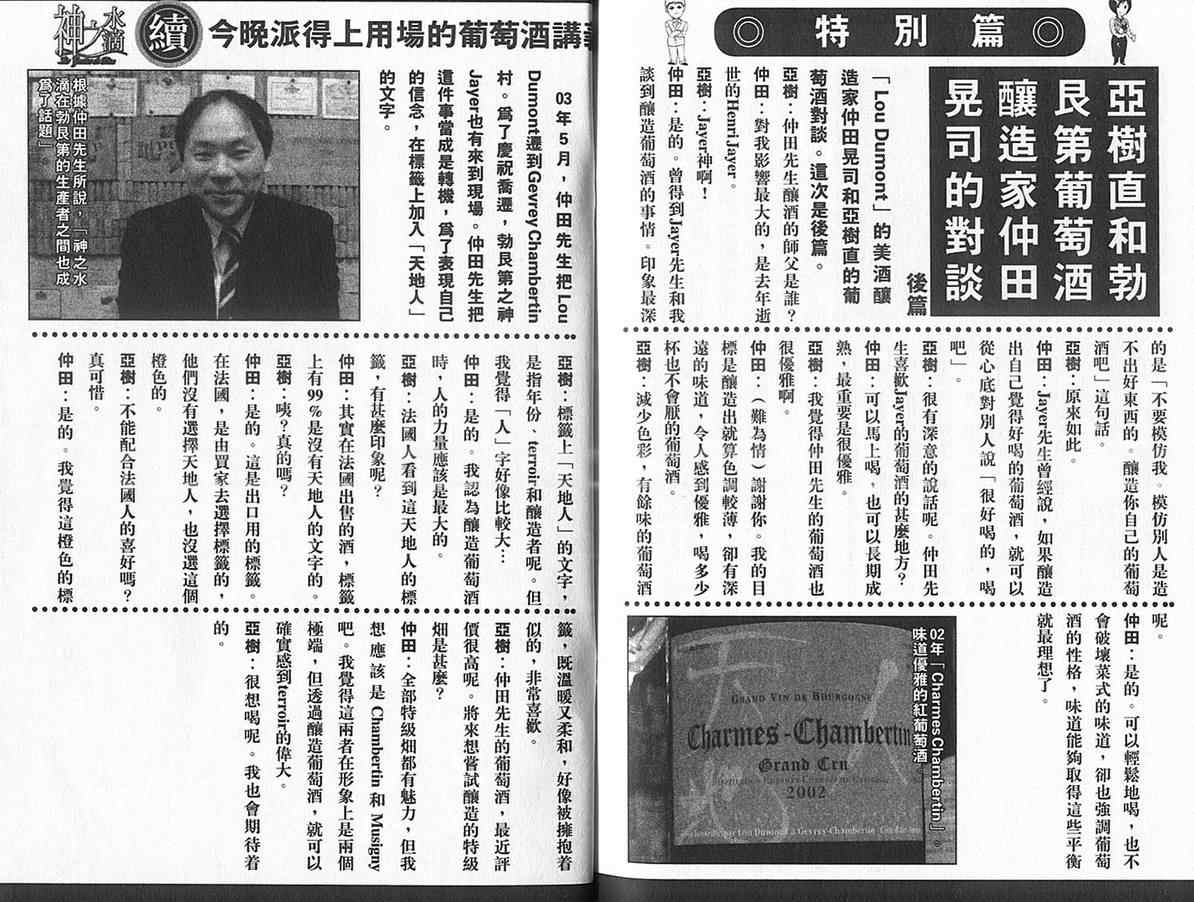 特別篇
亞樹直和勃
艮第葡萄酒
釀造家仲田
晃司的對談
後篇
「Lou Dumont」的美酒釀
造家仲田晃司和亞樹直的葡
萄酒對談。這次是後篇。
亞樹：仲田先生釀酒的師父是誰？
仲田：對我影響最大的，是去年逝
世的Henri Jayer。
亞樹：Jayer神啊！
仲田：是的。曾得到Jayer先生和我
談到釀造葡萄酒的事情。印象最深
的是「不要模仿我。模仿別人是造
不出好東西的。釀造你自己的葡萄
酒吧」這句話。
亞樹：原來如此。
仲田：Jayer先生曾經說，如果釀造
出自己覺得好喝的葡萄酒，就可以
從心底對別人說「很好喝的，喝
吧」。
亞樹：很有深意的說話呢。仲田先
生喜歡Jayer的葡萄酒的甚麼地方？
仲田：可以馬上喝，也可以長期成
熟，最重要是很優雅。
亞樹：我覺得仲田先生的葡萄酒也
很優雅啊。
仲田：（難為情）謝謝你。我的目
標是釀造出就算色調較薄，卻有深
遠的味道，令人感到優雅，喝多少
杯也不會厭的葡萄酒。
亞樹：減少色彩，有餘味的葡萄酒
呢。
仲田：是的。可以輕鬆地喝，也不
會破壞菜式的味道，卻也強調葡萄
酒的性格，味道能夠取得這些平衡
就最理想了。
02年「Charmes Chambertin」。
味道優雅的紅葡萄酒
天地人
GRAND VIN DE BOURGOGNE
Charmes-Chambertin
Grand Cru
2002
神之水滴
續
今晚派得上用場的葡萄酒講
03年5月，仲田先生把Lou
Dumont遷到Gevrey Chambertin
村。為了慶祝喬遷，勃艮第之神
Jayer也有來到現場。仲田先生把
這件事當成是轉機，為了表現自己
的信念，在標籤上加入「天地人」
的文字。
根據仲田先生所說，「神之水
滴在勃艮第的生產者之間也成
為了話題」。
亞樹：標籤上「天地人」的文字，
是指年份、terroir和釀造者呢。但
我覺得「人」字好像比較大…
仲田：是的。我認為釀造葡萄酒
時，人的力量應該是最大的。
亞樹：法國人看到這天地人的標
籤，有甚麼印象呢？
仲田：其實在法國出售的酒，標籤
上有99%是沒有天地人的文字的。
亞樹：咦？真的嗎？
仲田：是的。這是出口用的標籤。
在法國，是由買家去選擇標籤的，
他們沒有選擇天地人，也沒選這個
橙色的。
亞樹：不能配合法國人的喜好嗎？
真可惜。
仲田：是的。我覺得這橙色的標
籤，既溫暖又柔和，好像被擁抱着
似的，非常喜歡。
亞樹：仲田先生的葡萄酒，最近評
價很高呢。將來想嘗試釀造的特級
畑是甚麼？
仲田：全部特級畑都有魅力，但我
想應該是Chambertin和Musigny
吧。我覺得這兩者在形象上是兩個
極端，但透過釀造葡萄酒，就可以
確實感到terroir的偉大。
亞樹：很想喝呢。我也會期待着
的。